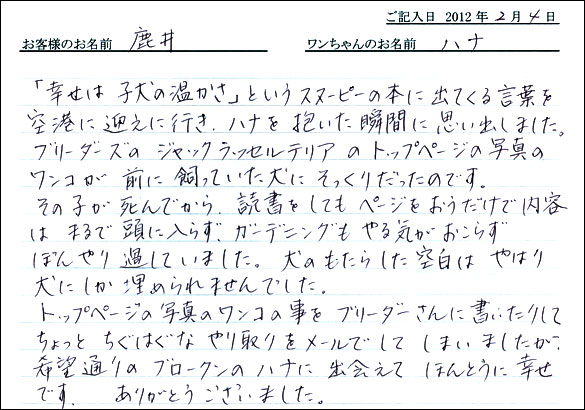 ご記入日 2012年 2月 4日
お客様のお名前 鹿井 ワンちゃんのお名前 ハナ
「幸せは 子犬の温かさ」というスヌーピーの本に出てくる言葉を
空港に迎えに行き、ハナを抱いた瞬間に思い出しました。
ブリーダーズの ジャックラッセルテリア のトップページの写真の
ワンコが 前に飼っていた犬に そっくりだったのです。
その子が 死んでから、読書をしても ページをおうだけで内容
は まるで頭に入らず、ガーデニングも やる気がおこらず
ぼんやり過していました。 犬のもたらした空白は やはり
犬にしか埋められませんでした。
トップページの写真のワンコの事を ブリーダーさんに書いたりして
ちょっと ちぐはぐな やり取りをメールでして しまいましたが、
希望通りの ブロークンの ハナに 出会えて ほんとうに 幸せ
です。 ありがとう ございました。